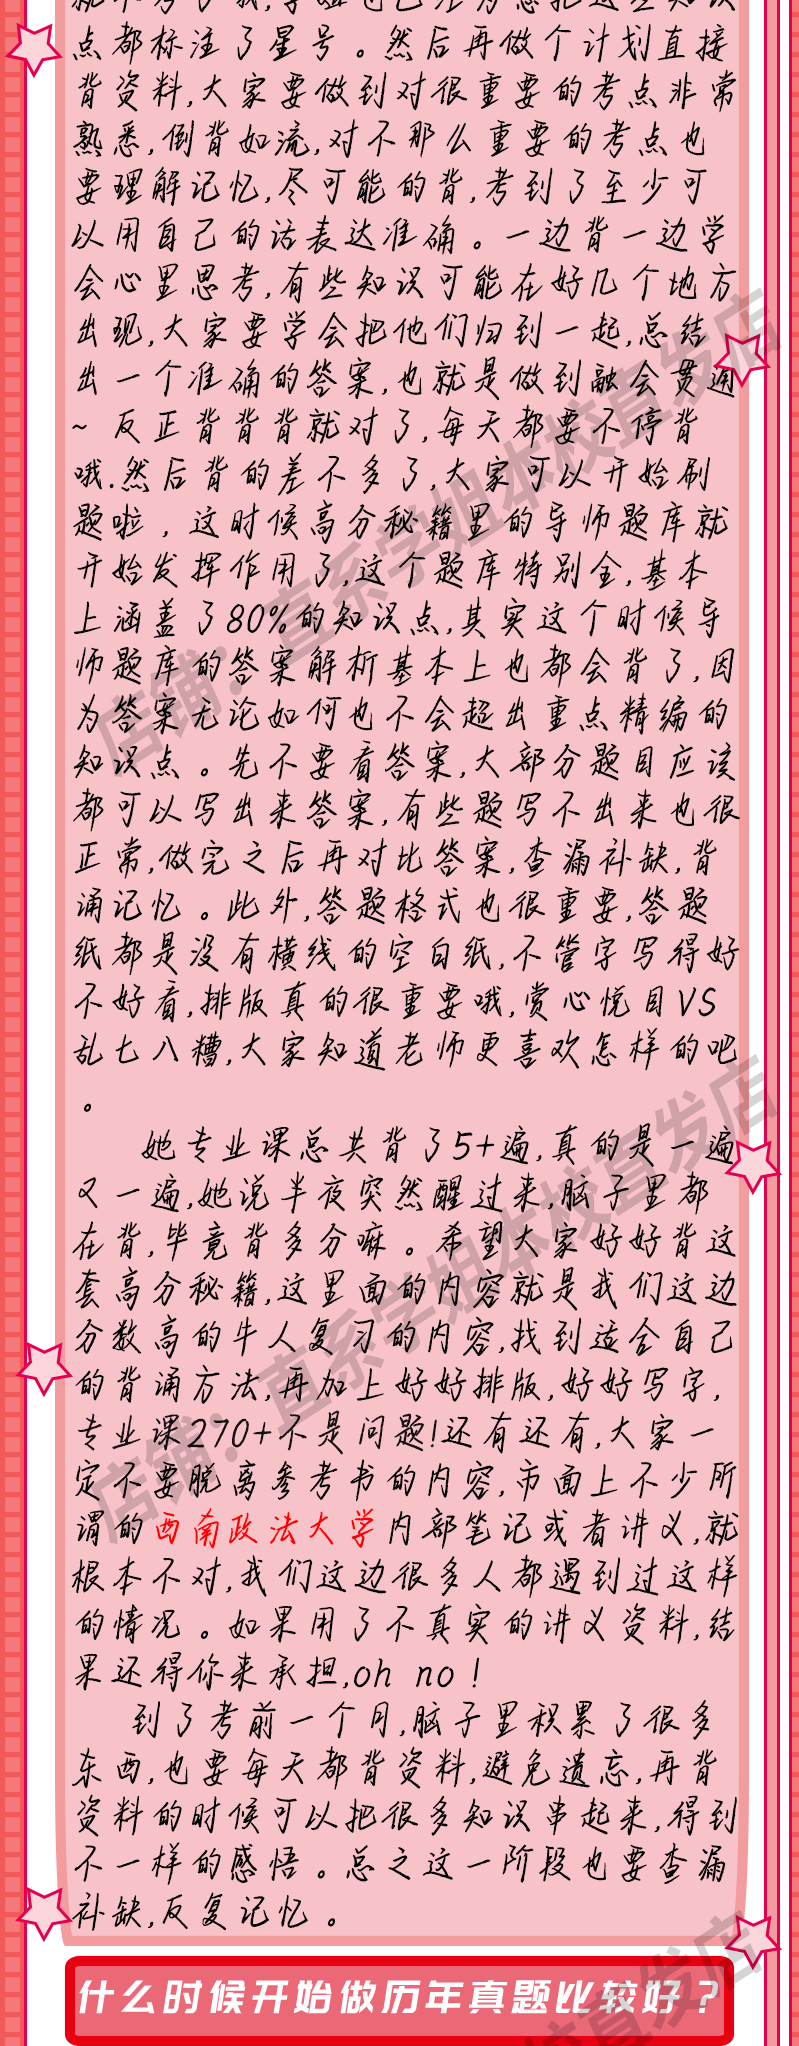 点都标注了星号。然后再做个计划直接
背资料,大家要做到对很重要的考点非常
熟悉,倒背如流,对不那么重要的考点也
要理解记忆,尽可能的背,考到了至少可
以用自己的话表达准确。一边背一边学
会心里思考,有些知识可能在好几个地方
出现,大家要学会把他们归到一起,总结
出一个准确的答案,也就是做到融会贯通
~反正背背背就对了,每天都要不停背
哦.然后背的差不多了,大家可以开始刷
题啦,这时候高分秘籍里的导师题库就
开始发挥作用了,这个题库特别金,基本
上涵盖了80%的知识点,其实这个时候导
师题库的答案解析基本上也都会背了,因
为答案无论如何也不会超出重点精编的
知识点。先不要看答案,大部分题目应该
都可以写出来答案,有些题写不出来也很
正常,做完之后再对比答案,查漏补缺,背
诵记忆。此外,答题格式也很重要,答题
纸都是没有横线的空白纸,不管字写得好
不好看,排版真的很重要哦,赏心悦目VS
乱七八糟,大家知道老师更喜欢怎样的吧
。
她专业课总共背了5+遍,真的是一遍
又一遍,她说半夜突然醒过来,脑子里都
在背,毕竟背多分嘛。希望大家好好背这
套高分秘籍,这里面的内容就是我们这边
分数高的牛人复习的内容,找到适合自己
的背诵方法,再加上好好排版,好好写字,
专业课270+不是问题!还有还有,大家一
定不要脱离参考书的内容,市面上不少所
谓的西南政法大学内部笔记或者讲义,就
根本不对,我们这边很多人都遇到过这样
的情况。如果用了不真实的讲义资料,结
果还得你来承担,oh no!
到了考前一个月,脑子里积累了很多
东西,也要每天都背资料,避免遗忘,再背
资料的时候可以把很多知识串起来,得到
不一样的感悟。总之这一阶段也要查漏
补缺,反复记忆。
什么时候开始做历年真题比较好？
店铺：直系学姐本校直发店
店铺：直系学姐本校直发店
校直发店